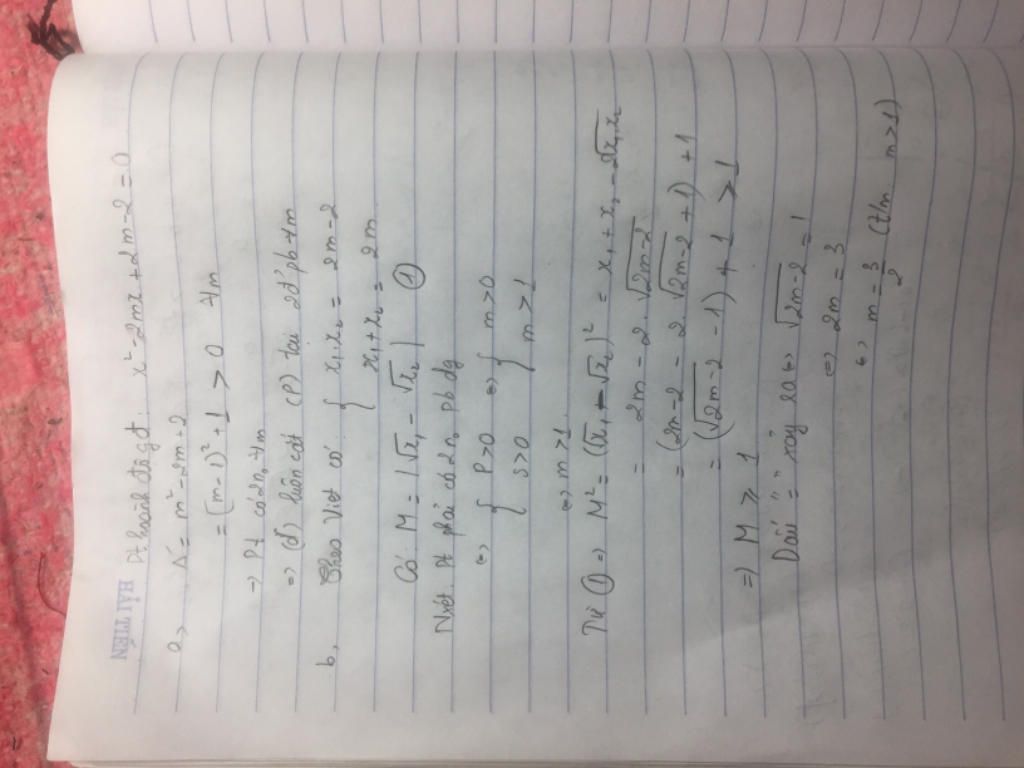 HẢI TIẾN
Pt hoành độ gđ: x² - 2mx + 2m - 2 = 0
a, Δ' = m² - 2m + 2
= [m - 1)² + 1 > 0 ∀m
→ Pt có 2n₀ ∀m
=> (d) luôn cắt (P) tại 2đ' pb ∀m
b, Theo Viét có: { x₁x₂ = 2m - 2
x₁ + x₂ = 2m
Có: M = |√x₁ - √x₂| ①
Nxét: Pt phải có 2n₀ pb dg
<=> { P > 0 <=> { m > 0
S > 0 m > 1
<=> m > 1
Từ ① => M² = (√x₁ - √x₂)² = x₁ + x₂ - 2√x₁x₂
= 2m - 2.√2m-2
= (2m - 2 - 2.√2m-2 + 1) + 1
= (√2m-2 - 1) + 1 > 1
=> M ≥ 1
Dấu "=" xảy ra <=> √2m-2 = 1
<=> 2m = 3
<=> m = 3/2 (t/m m > 1)